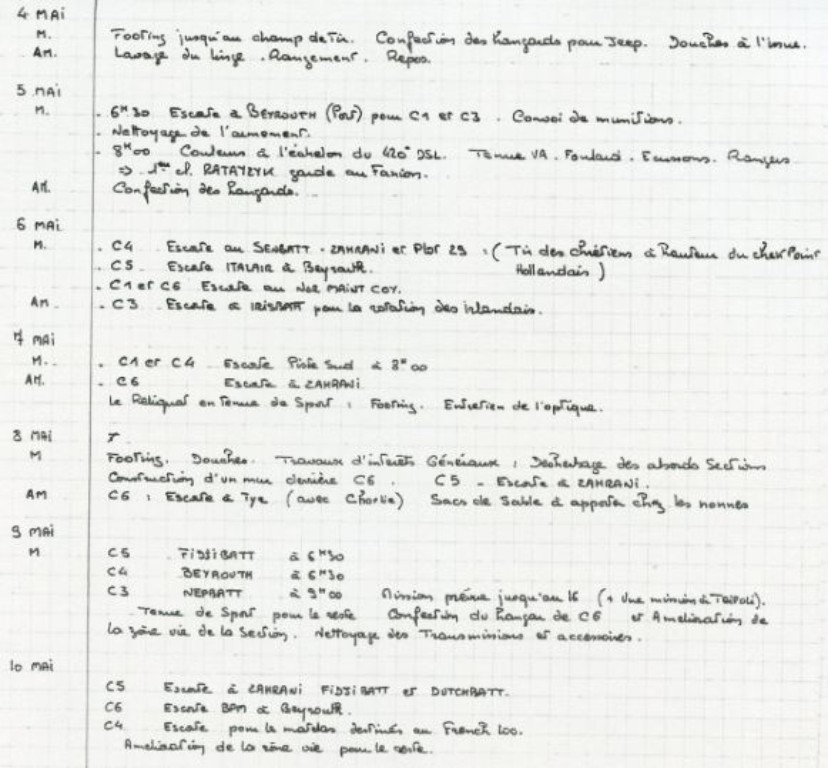 4 MAI
M. Footing jusqu'au champ de Tir. Confection des hangards pour Jeep. Douches à l'issue.
AM. Lavage du linge. Rangement. Repos.
5 MAI
M. - 6H30 Escorte à BEYROUTH (Port) pour C1 et C3. Convoi de munitions.
- Nettoyage de l'armement.
- 8H00 Couleurs à l'échelon du 420° DSL. Tenue VA. Foulard. Ecussons. Rangers
=> 1ere cl. RATAYZYK garde au Fanion.
AM. Confection des hangards.
6 MAI
M. - C4 Escorte au SENBATT - ZAHRANI et Plot 25 : (Tir des chrétiens à hauteur du check Point
Hollandais)
- C5 Escorte ITALAIR à Beyrouth.
- C1 et C6 Escorte au NOR MAINT COY.
AM. - C3 Escorte à IRISBATT pour la rotation des irlandais.
7 MAI
M. - C1 et C4 Escorte Piste Sud à 8H00
AM. - C6 Escorte à ZAHRANI
Le Reliquat en Tenue de Sport : Footing. Entretien de l'optique.
8 MAI
M Footing. Douches. Travaux d'intérêts Généraux : Désherbage des abords Sections
Construction d'un mur derrière C6. C5 - Escorte à ZAHRANI.
AM C6 : Escorte à Tyr (avec Charlie) Sacs de Sable à apporter chez les nonnes
9 MAI
M C5 FIDJIBATT à 6H30
C4 BEYROUTH à 6H30
C3 NEPBATT à 9H00 Mission prévue jusqu'au 16 (+ Une mission à Tripoli).
Tenue de Sport pour le reste Confection du hangar de C6 et Amélioration de
la zône vie de la Section. Nettoyage des Transmissions et accessoires.
10 MAI
C5 Escorte à ZAHRANI FIDJIBATT et DUTCHBATT.
C6 Escorte BPM à Beyrouth.
C4 Escorte pour le matelas destinés au French Loo.
Amélioration de la zône vie pour le reste.